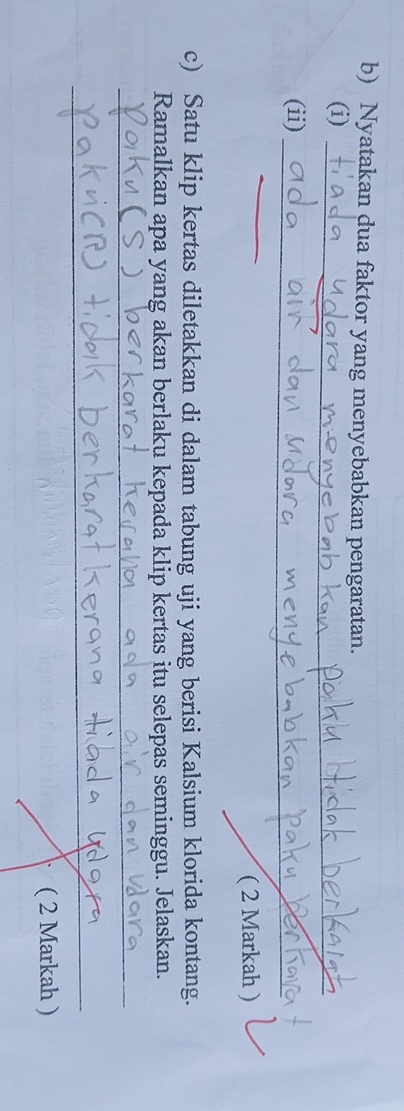 b) Nyatakan dua faktor yang menyebabkan pengaratan.
(i) tiada udara menyebabkan paku tidak berkarat
(ii) ada air dan udara menyebabkan paku berkarat
( 2 Markah )
c) Satu klip kertas diletakkan di dalam tabung uji yang berisi Kalsium klorida kontang.
Ramalkan apa yang akan berlaku kepada klip kertas itu selepas seminggu. Jelaskan.
paku (S) berkarat kerana ada air dan udara
paku (R) tidak berkarat kerana tiada udara
( 2 Markah )